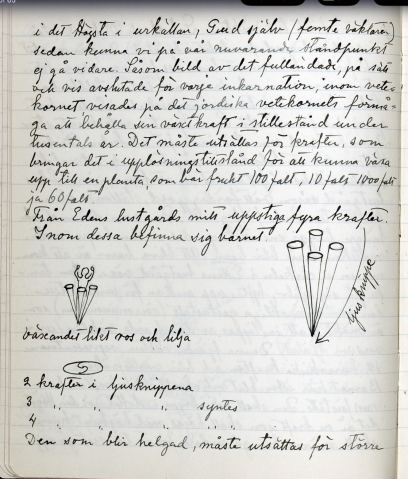 i det Högsta i urkällan, Gud själv (femte väktaren)
sedan kunna vi på vår nuvarande ståndpunkt
ej gå vidare. Såsom bild av det fulländade, på sätt
och vis avslutade för varje inkarnation, inom vete-
kornet visades på det jordiska vetekornets förmå-
ga att behålla sin växtkraft i stillestånd under
tusentals år. Det måste utsättas för krafter, som
bringar det i upplösningstillstånd för att kunna växa
upp till en planta, som bär frukt 100 falt, 10 falt 1000 falt
ja 60 falt
Från Edens lustgårds mitt uppstiga fyra krafter.
Inom dessa befinna sig barnet.
ljus knippe
växandet likt ros och lilja
5
2 krafter i ljusknippena
3 " " " syntes
4 " " " "
Den som blir helgad, måste utsättas för större